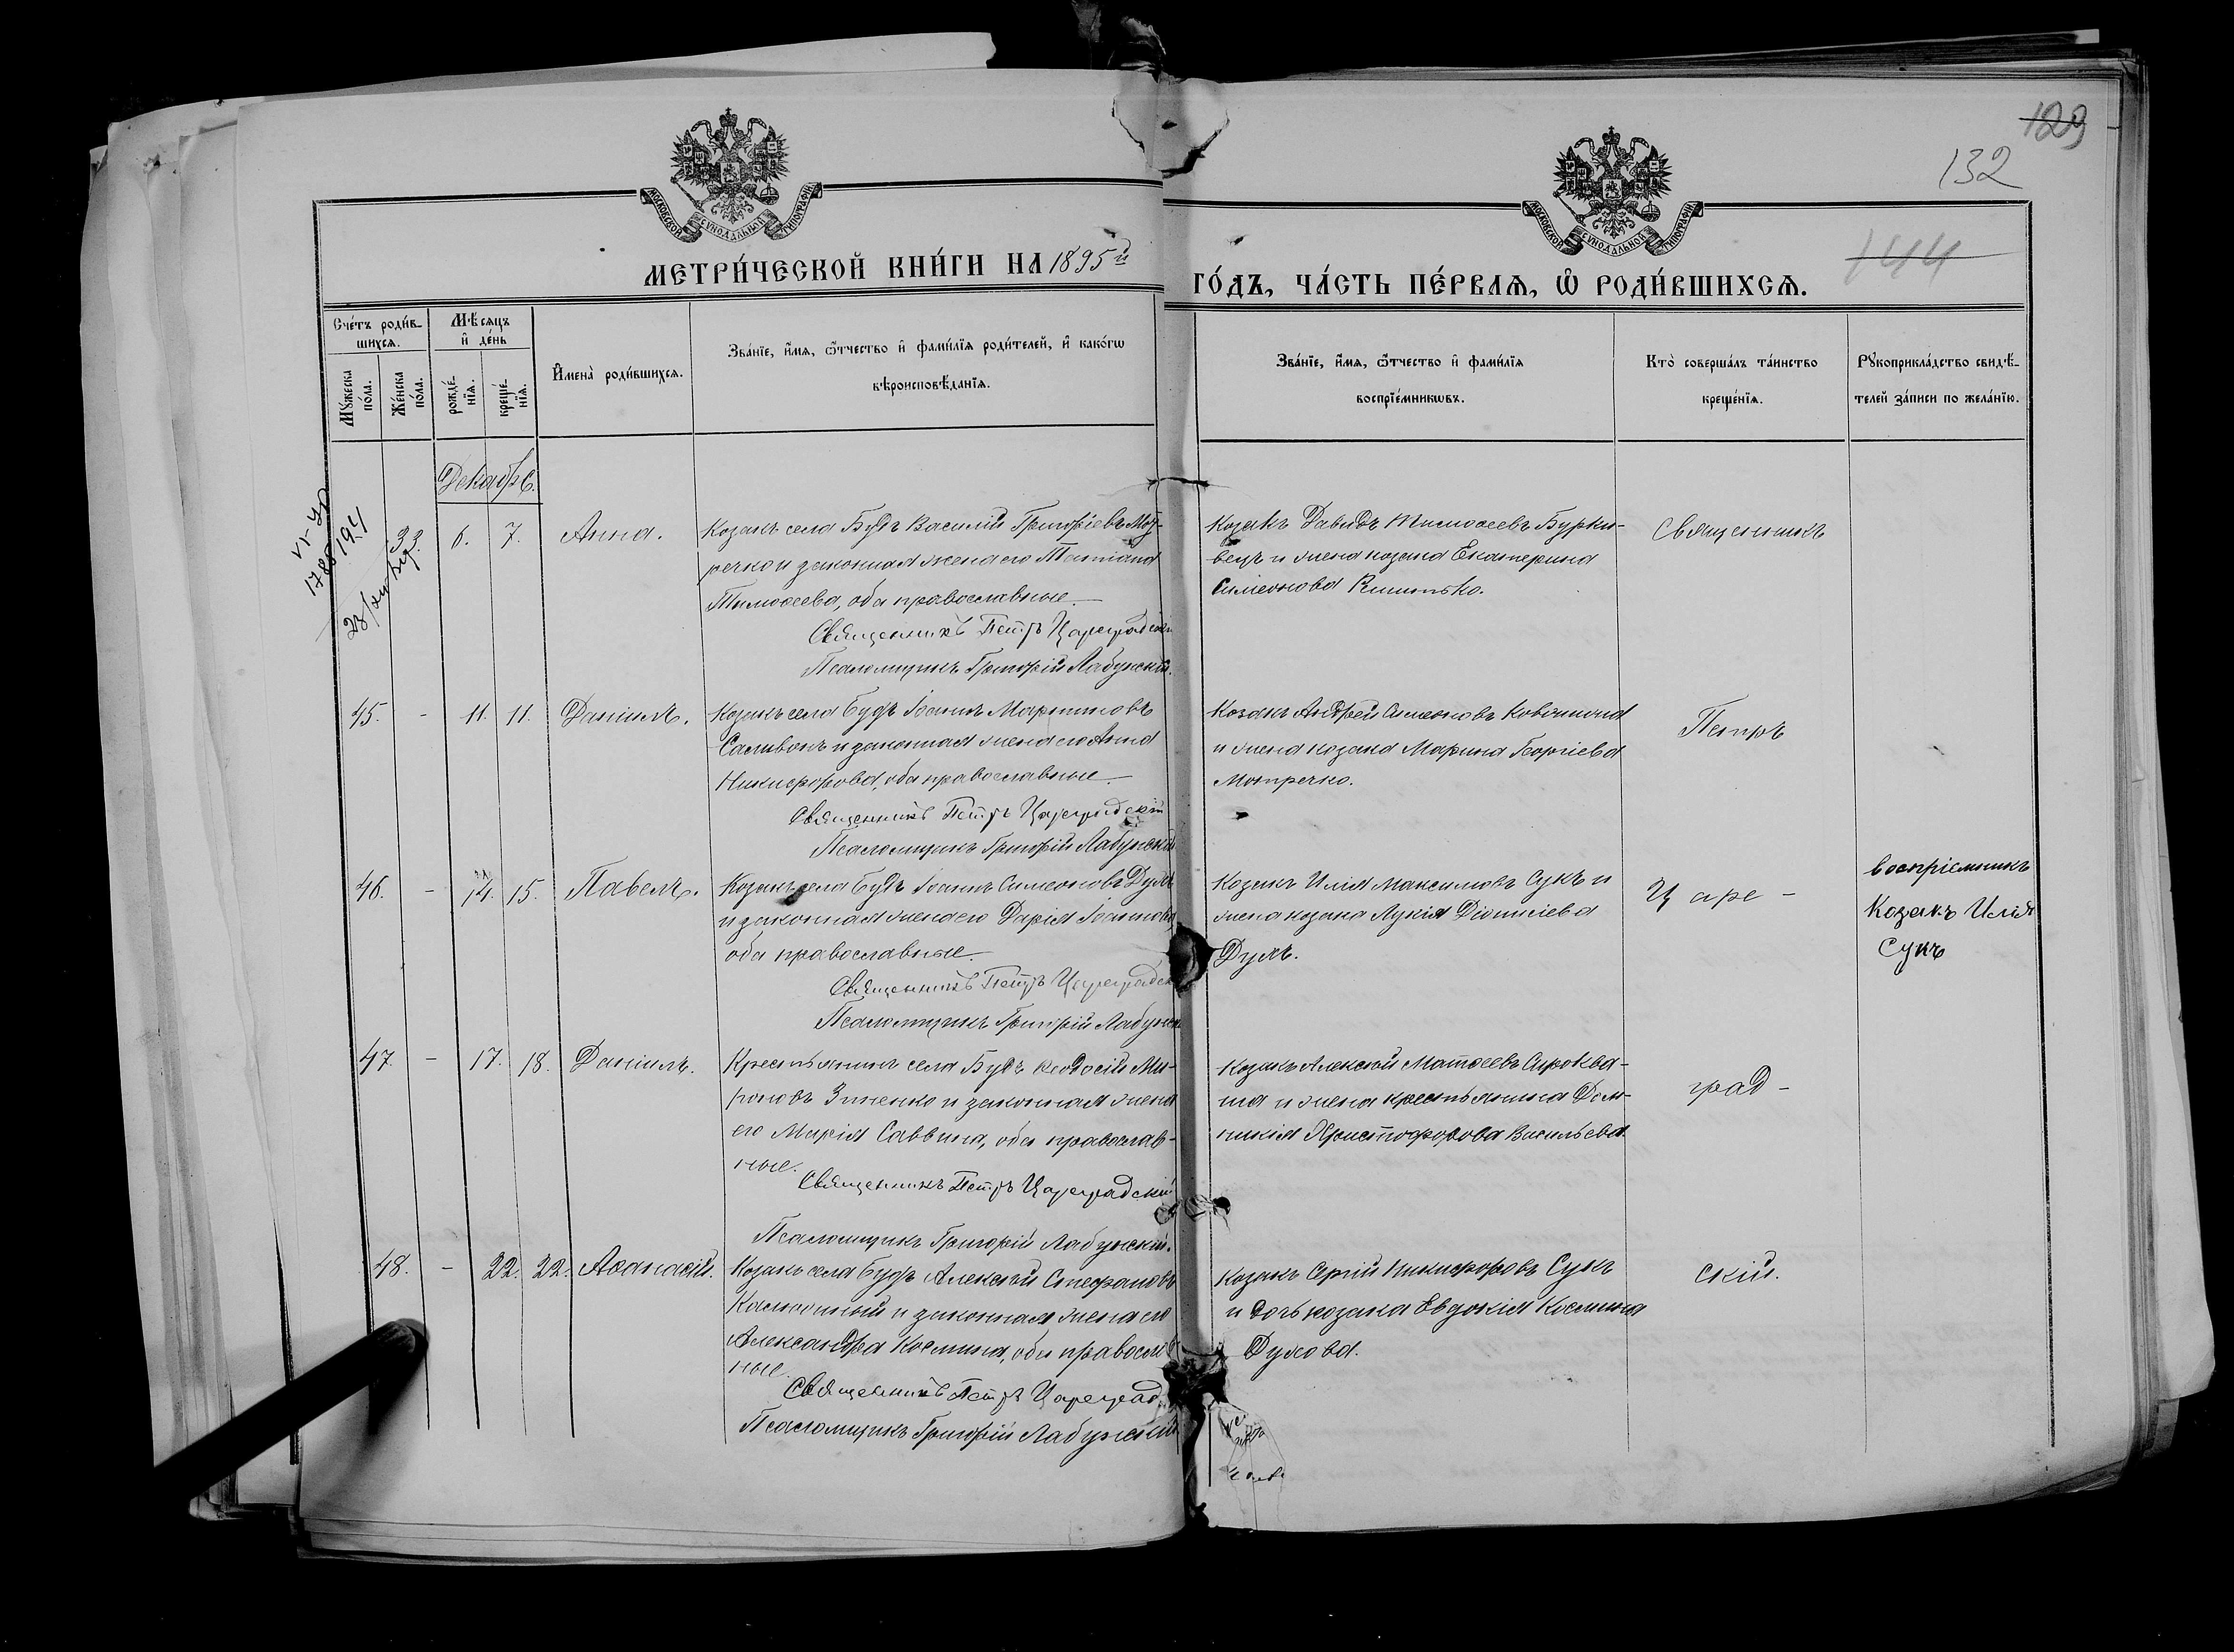 129
132
144
МОСКОВСКОЙ СѴНОДАЛЬНОЙ ТИПОГРАФІИ
МОСКОВСКОЙ СѴНОДАЛЬНОЙ ТИПОГРАФІИ
МЕТРИ́ЧЕСКОЙ КНИ́ГИ НА 1895й
ГО́ДЪ, ЧА́СТЬ ПЕ́РВАѦ, Ѡ҆ РОДИ́ВШИХСѦ.
Сче́тъ роди́в-
шихсѧ.
Мꙋ́жеска по́ла.
Же́нска по́ла.
Мѣ́сѧцъ
и҆ де́нь
рожде́-
нїѧ.
креще́-
нїѧ.
И҆мена̀ роди́вшихсѧ.
Зва́нїе, и҆́мѧ, ѻ҆́тчество и҆ фами́лїѧ роди́телей, и҆ како́гѡ
вѣроисповѣ́данїѧ.
Зва́нїе, и҆́мѧ, ѻ҆́тчество и҆ фами́лїѧ
воспрїе́мникѡвъ.
Кто̀ соверша́лъ та́инство
креще́нїѧ.
Рꙋкоприкла́дство свидѣ́-
телей за́писи по жела́нїю.
Декабрь.
33. 6. 7. Анна.
Козакъ села Будъ Василій Григоріевъ Мот-
речко и законная жена его Татіана
Тимоѳеева, оба православные
Священникъ Петръ Цареградскій
Псаломщикъ Григорій Лабунскій.
Козакъ Давидъ Тимоѳеевъ Бурки-
вецъ и жена козака Екатерина
Симеонова
Священникъ
45. - 11. 11. Даніилъ.
Козакъ села Будъ Іоаннъ Мартиновъ
Саливонъ и законная жена его Анна
Никифорова, оба православные
Священникъ Петръ Цареградскій
Псаломщикъ Григорій Лабунскій
Козакъ Андрей Симеоновъ
и жена козака Марина Георгіева
Мотречко.
Петръ
46. - 14. 15. Павелъ.
Козакъ села Будъ Іоаннъ Симеоновъ
и законная жена его Дарія Іоаннова
оба православные.
Священникъ Петръ Цареградск
Псаломщикъ Григорій Лабунск
Козакъ Илія Максимовъ Сукъ и
жена козака Лукія Діонисіева
Царе -
воспріемникъ
Козакъ Илія
Сукъ
47. - 17. 18. Даніилъ.
Крестьянинъ села Будъ Ѳеодосій Ми-
роновъ Зиненко и законная жена
его Марія Саввина, оба православ-
ные.
Священникъ Петръ Цареградскій
Псаломщикъ Григорій Лабунскій.
Козакъ Алексій Матѳеевъ Сироква-
ша и жена крестьянина Дом-
никія Христофорова Васильева
град -
48. - 22. 22. Аѳанасій.
Козакъ села Будъ Алексій Стефановъ
и законная жена его
Александра Космина, оба православ
ные.
Священникъ Петръ Цареград
Псаломщикъ Григорій Лабунскій
Козакъ Сергій Никифоровъ Сукъ
и дочь козака Евдокія Космина
скій.